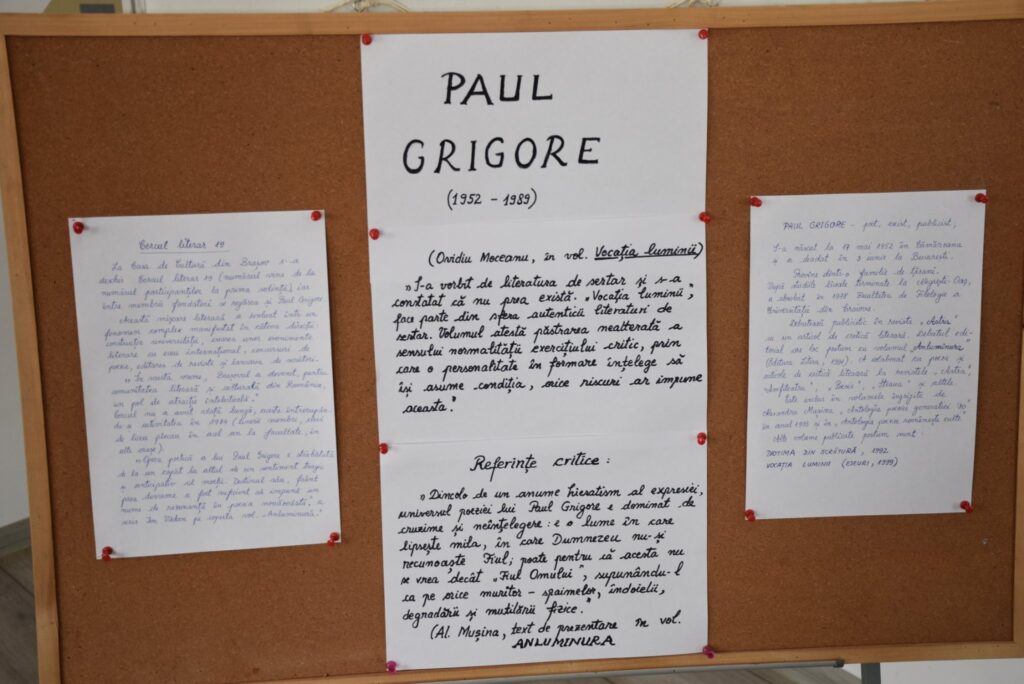 Cercul literar 19
La Casa de Cultură din Brașov s-a
deschis Cercul literar 19 (numărul vine de la
numărul participanților la prima ședință), iar
între membrii fondatori se regăsea și Paul Grigore.
Această mișcare literară a existat într-un
fenomen complex manifestat în câteva direcții:
literare cu ecou internațional, concursuri de
poezie, editarea de reviste și lansarea de scriitori.
"În acea vreme, Brașovul a devenit, pentru
comunitatea literară și culturală din România,
un pol de atracție intelectuală."
Cercul nu a avut viață lungă,
activitatea în 1984 (tinerii membri, elevi
de liceu plecau în acel an la facultate, în
alte orașe).
"Opera poetică a lui Paul Grigore e străbătută
de la un capăt la altul de un sentiment tragic
și anticipativ al morții. Destinul său, frânt
prea devreme a fost suficient să impună un
nume de rezonanță în poezia românească", a
scris Ion pe coperta vol. "Anluminura".
PAUL
GRIGORE
(1952 - 1989)
(Ovidiu Moceanu, în vol. Vocația luminii)
"S-a vorbit de literatura de sertar și s-a
constatat că nu prea există. "Vocația luminii",
face parte din sfera autenticii literaturi de
sertar. Volumul atestă păstrarea nealterată a
sensului normalității exercițiului critic, prin
care o personalitate în formare înțelege să
își asume condiția, orice riscuri ar impune
aceasta."
Referințe critice :
"Dincolo de un anume hieratism al expresiei,
universul poeziei lui Paul Grigore e dominat de
cruzime și neînțelegere: e o lume în care
lipsește mila, în care Dumnezeu nu-și
recunoaște Fiul; poate pentru că acesta nu
se vrea decât "Fiul Omului", supunându-l
ca pe orice muritor - spaimelor, îndoielii,
degradării și mutilării fizice."
(Al. Mușina, text de prezentare în vol.
ANLUMINURA
PAUL GRIGORE - poet, eseist, publicist,
S-a născut la 17 mai 1952 în Cămărzana
și a decedat în 3 iunie la București.
Provine dintr-o familie de țărani.
După studiile liceale terminate la Negrești-Oaș,
a absolvit în 1978 Facultatea de Filologie a
Universității din Craiova.
Debutează publicistic în revista "Astra"
cu un articol de critică literară. Debutul edi-
torial are loc postum cu volumul "Anluminura"
(Editura Litera, 1991). A colaborat cu poezii și
articole de critică literară la revistele "Astra",
"Amfiteatru", "Steaua" și altele.
Este inclus în volumele îngrijite de
Alexandru Mușina, "Antologia poeziei generației '80"
în anul 1993 și în "Antologia poeziei românești culte".
Alte volume publicate postum sunt:
DIOTIMA DIN SCRÂNTURĂ, 1992
VOCAȚIA LUMINII (ESEURI, 1999)